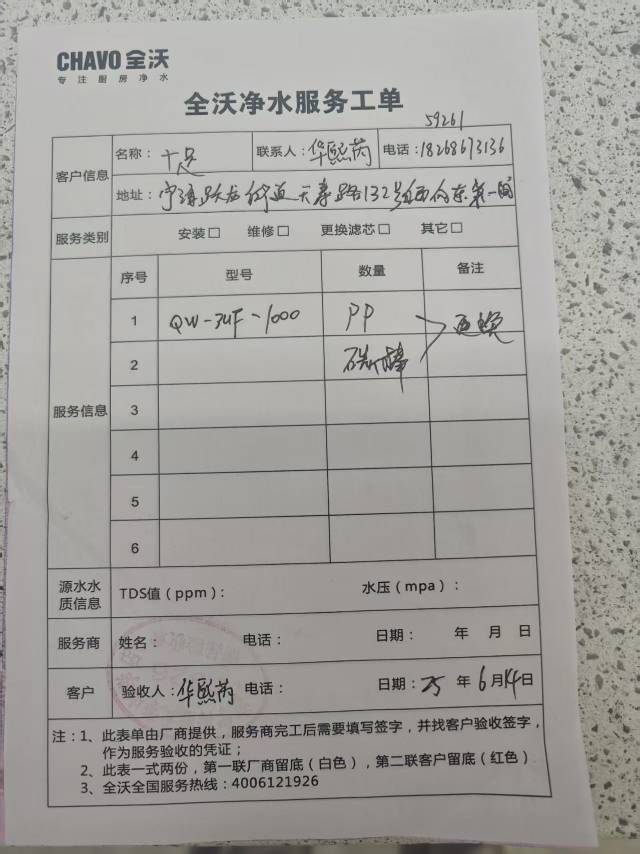 CHAVO 全沃
专注厨房净水
全沃净水服务工单
59261
客户信息 名称： 十足 联系人：华熙芮 电话：18268673136
地址：宁海跃龙街道天寿路132号西向东第一间
服务类别 安装□ 维修□ 更换滤芯□ 其它□
服务信息 序号 型号 数量 备注
1 QW-3UF-1000 PP 更换
2 碳棒
3
4
5
6
源水水质信息 TDS值（ppm）： 水压（mpa）：
服务商 姓名： 电话： 日期： 年 月 日
客户 验收人：华熙芮 电话： 日期：25年6月14日
注：1、此表单由厂商提供，服务商完工后需要填写签字，并找客户验收签字，
作为服务验收的凭证；
2、此表一式两份，第一联厂商留底（白色），第二联客户留底（红色）
3、全沃全国服务热线：4006121926